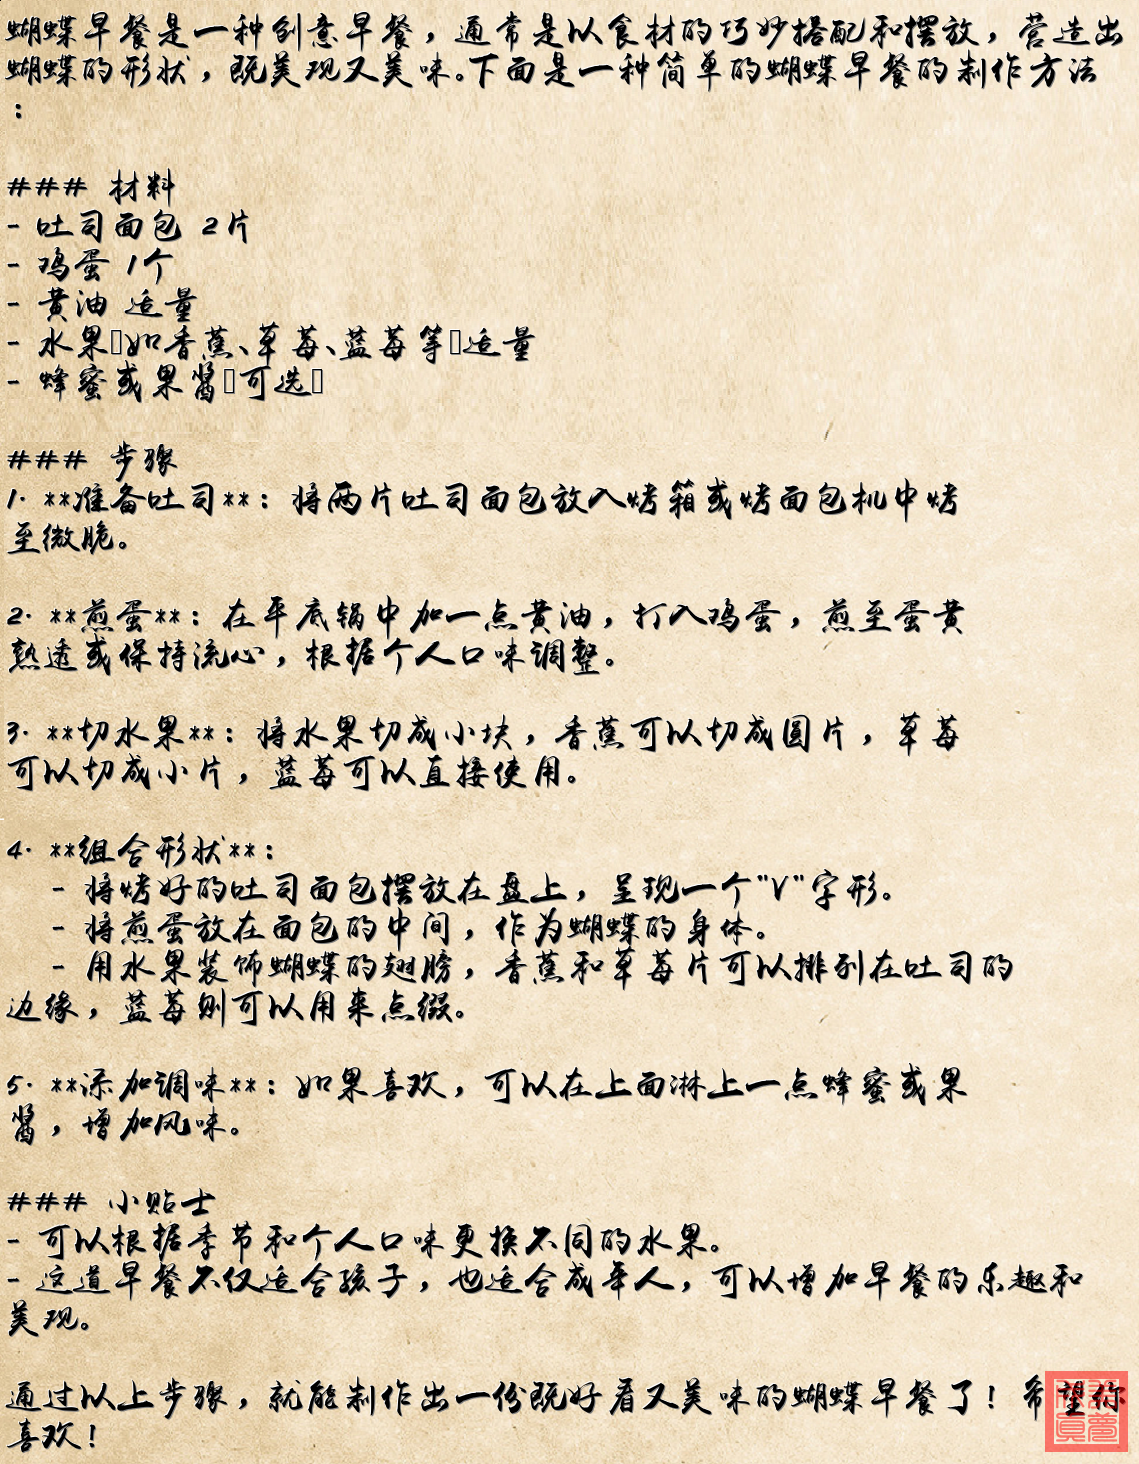 蝴蝶早餐是一种创意早餐，通常是以食材的巧妙搭配和摆放，营造出
蝴蝶的形状，既美观又美味。下面是一种简单的蝴蝶早餐的制作方法
：
### 材料
- 吐司面包 2片
- 鸡蛋 1个
- 黄油 适量
- 水果▯如香蕉、草莓、蓝莓等▯适量
- 蜂蜜或果酱▯可选▯
### 步骤
1. **准备吐司**：将两片吐司面包放入烤箱或烤面包机中烤
至微脆。
2. **煎蛋**：在平底锅中加一点黄油，打入鸡蛋，煎至蛋黄
熟透或保持流心，根据个人口味调整。
3. **切水果**：将水果切成小块，香蕉可以切成圆片，草莓
可以切成小片，蓝莓可以直接使用。
4. **组合形状**：
- 将烤好的吐司面包摆放在盘上，呈现一个"V"字形。
- 将煎蛋放在面包的中间，作为蝴蝶的身体。
- 用水果装饰蝴蝶的翅膀，香蕉和草莓片可以排列在吐司的
边缘，蓝莓则可以用来点缀。
5. **添加调味**：如果喜欢，可以在上面淋上一点蜂蜜或果
酱，增加风味。
### 小贴士
- 可以根据季节和个人口味更换不同的水果。
- 这道早餐不仅适合孩子，也适合成年人，可以增加早餐的乐趣和
美观。
通过以上步骤，就能制作出一份既好看又美味的蝴蝶早餐了！希望你
喜欢！